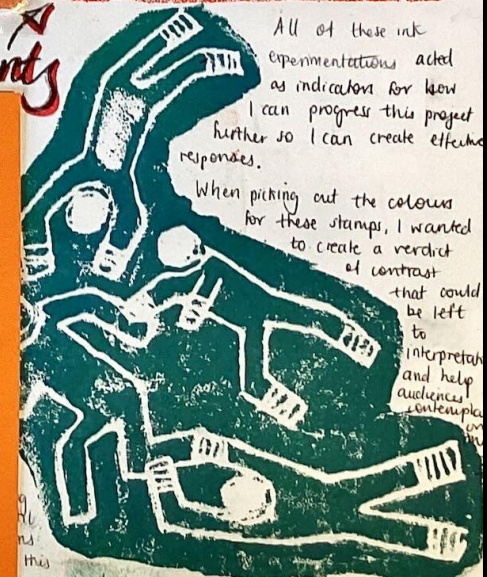 nts
All of these ink
experimentations acted
as indicators for how
I can progress this project
further so I can create effective
responses.
When picking out the colours
for these stamps, I wanted
to create a verdict
of contrast
that could
be left
to
interpretati
and help
audiences
contempla
on
this